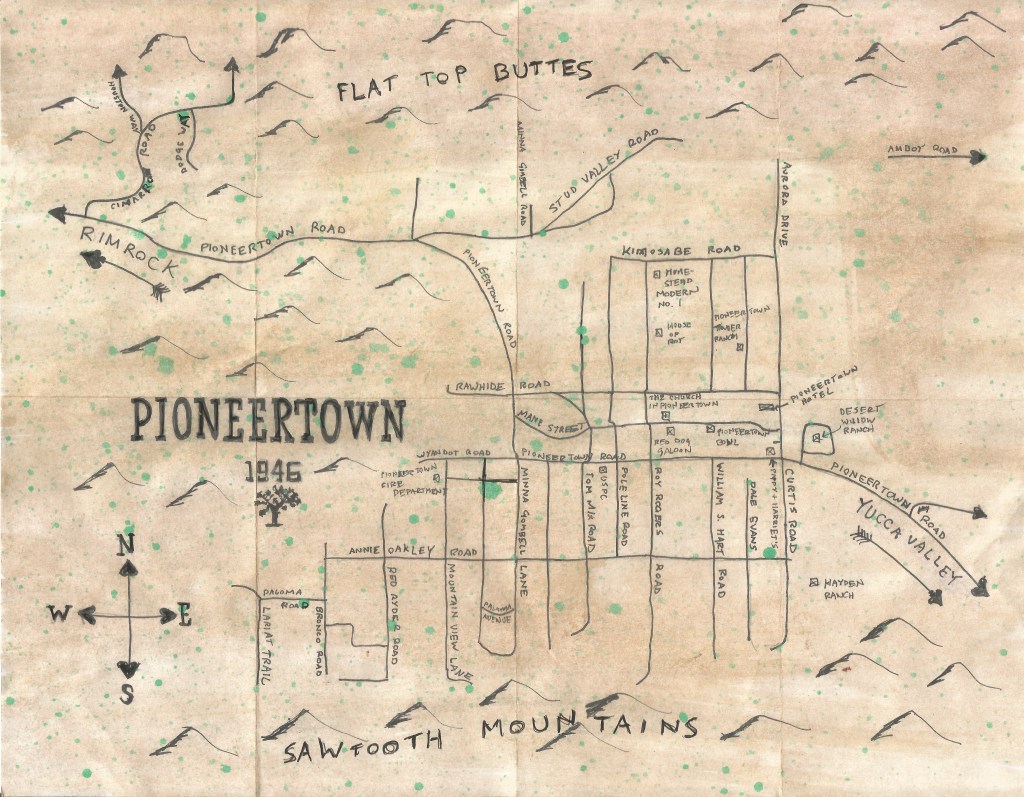 FLAT TOP BUTTES
HOUSTON WAY
DOBBS WAY
CIMARRON ROAD
MINNA GOMBELL ROAD
STUD VALLEY ROAD
AMBOY ROAD
AURORA DRIVE
RIMROCK
PIONEERTOWN ROAD
PIONEERTOWN ROAD
KIMOSABE ROAD
HOME-
STEAD
MODERN
NO. 1
HOUSE
OF
ROY
PIONEERTOWN
RANCH
RAWHIDE ROAD
MANE STREET
THE CHURCH
IN PIONEERTOWN
PIONEERTOWN
HOTEL
DESERT
WILLOW
RANCH
RED DOG
SALOON
PIONEERTOWN
BOWL
PIONEERTOWN
1946
WYANDOT ROAD
PIONEERTOWN ROAD
PIONEERTOWN
FIRE
DEPARTMENT
MINNA GOMBELL LANE
TOM MIX ROAD
USPC
POLE LINE ROAD
ROY ROGERS ROAD
WILLIAM S. HART ROAD
DALE EVANS
PAPPY + HARRIET'S
CURTIS ROAD
PIONEERTOWN ROAD
YUCCA VALLEY
ANNIE OAKLEY ROAD
HAYDEN
RANCH
N
W
E
S
PALOMA
ROAD
LARIAT TRAIL
BRONCO ROAD
RED RYDER ROAD
MOUNTAIN VIEW LANE
PALOMA
AVENUE
SAWTOOTH MOUNTAINS